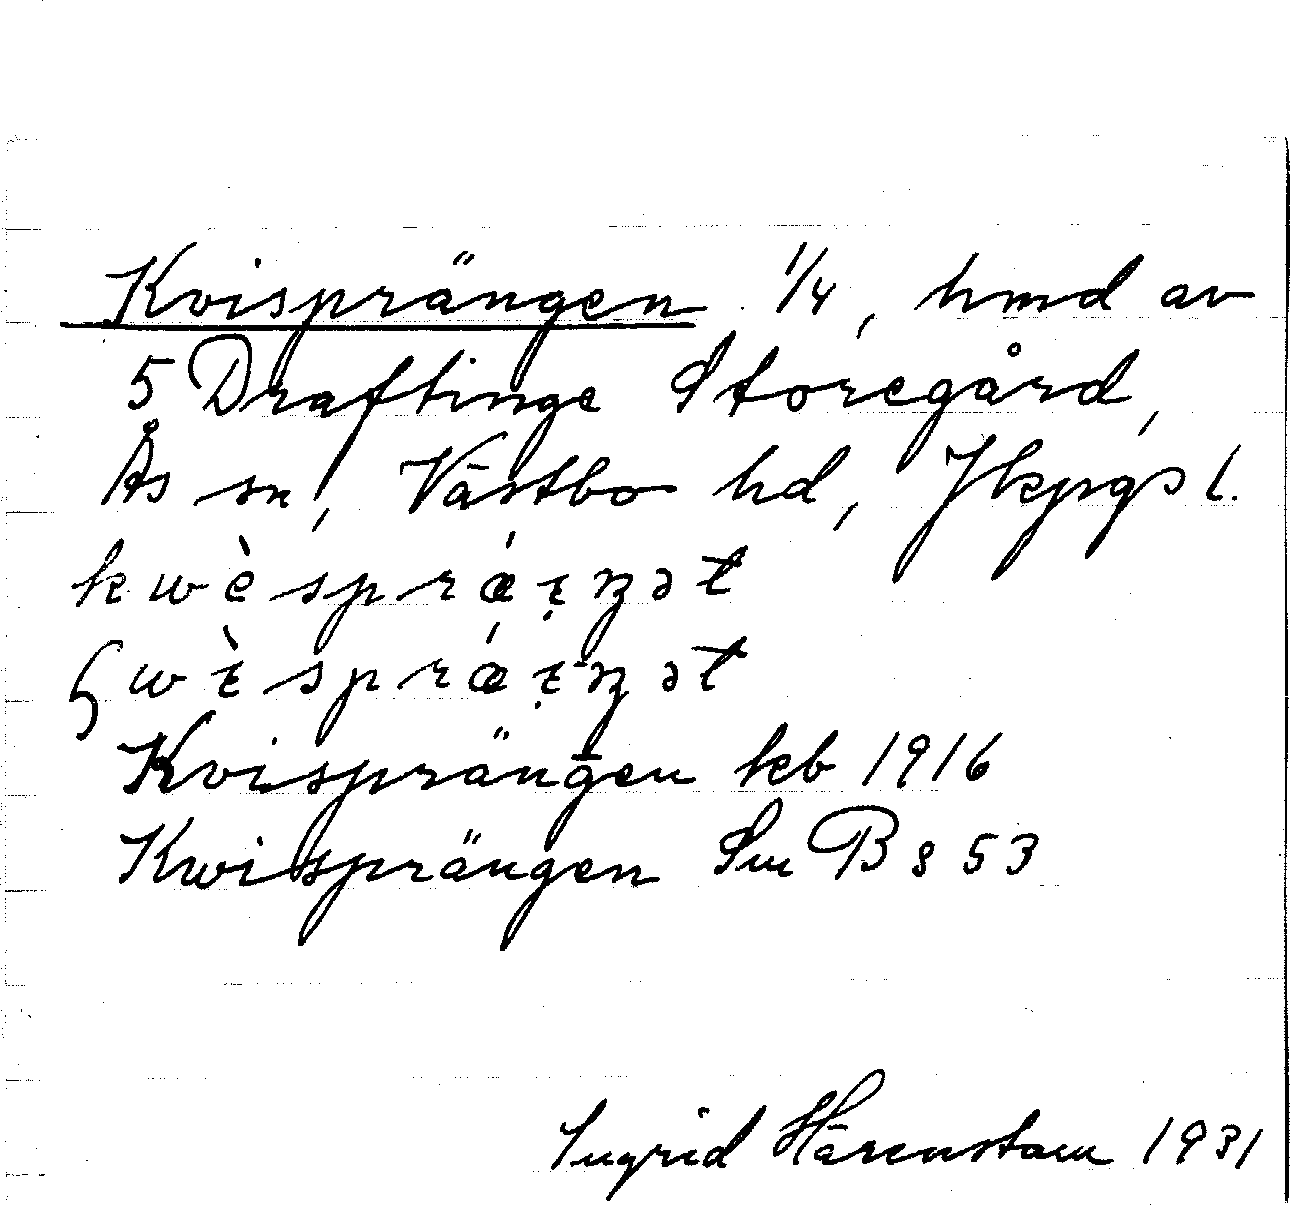 Kvisprängen 1/4, hmd av
5 Draftinge Storegård,
Ås sn, Västbo hd, Jkpgs l.
kwèspráɪŋət
Kvisprängen kb 1916
Kwisprängen Sm B s 53
Ingrid Härenstam 1931